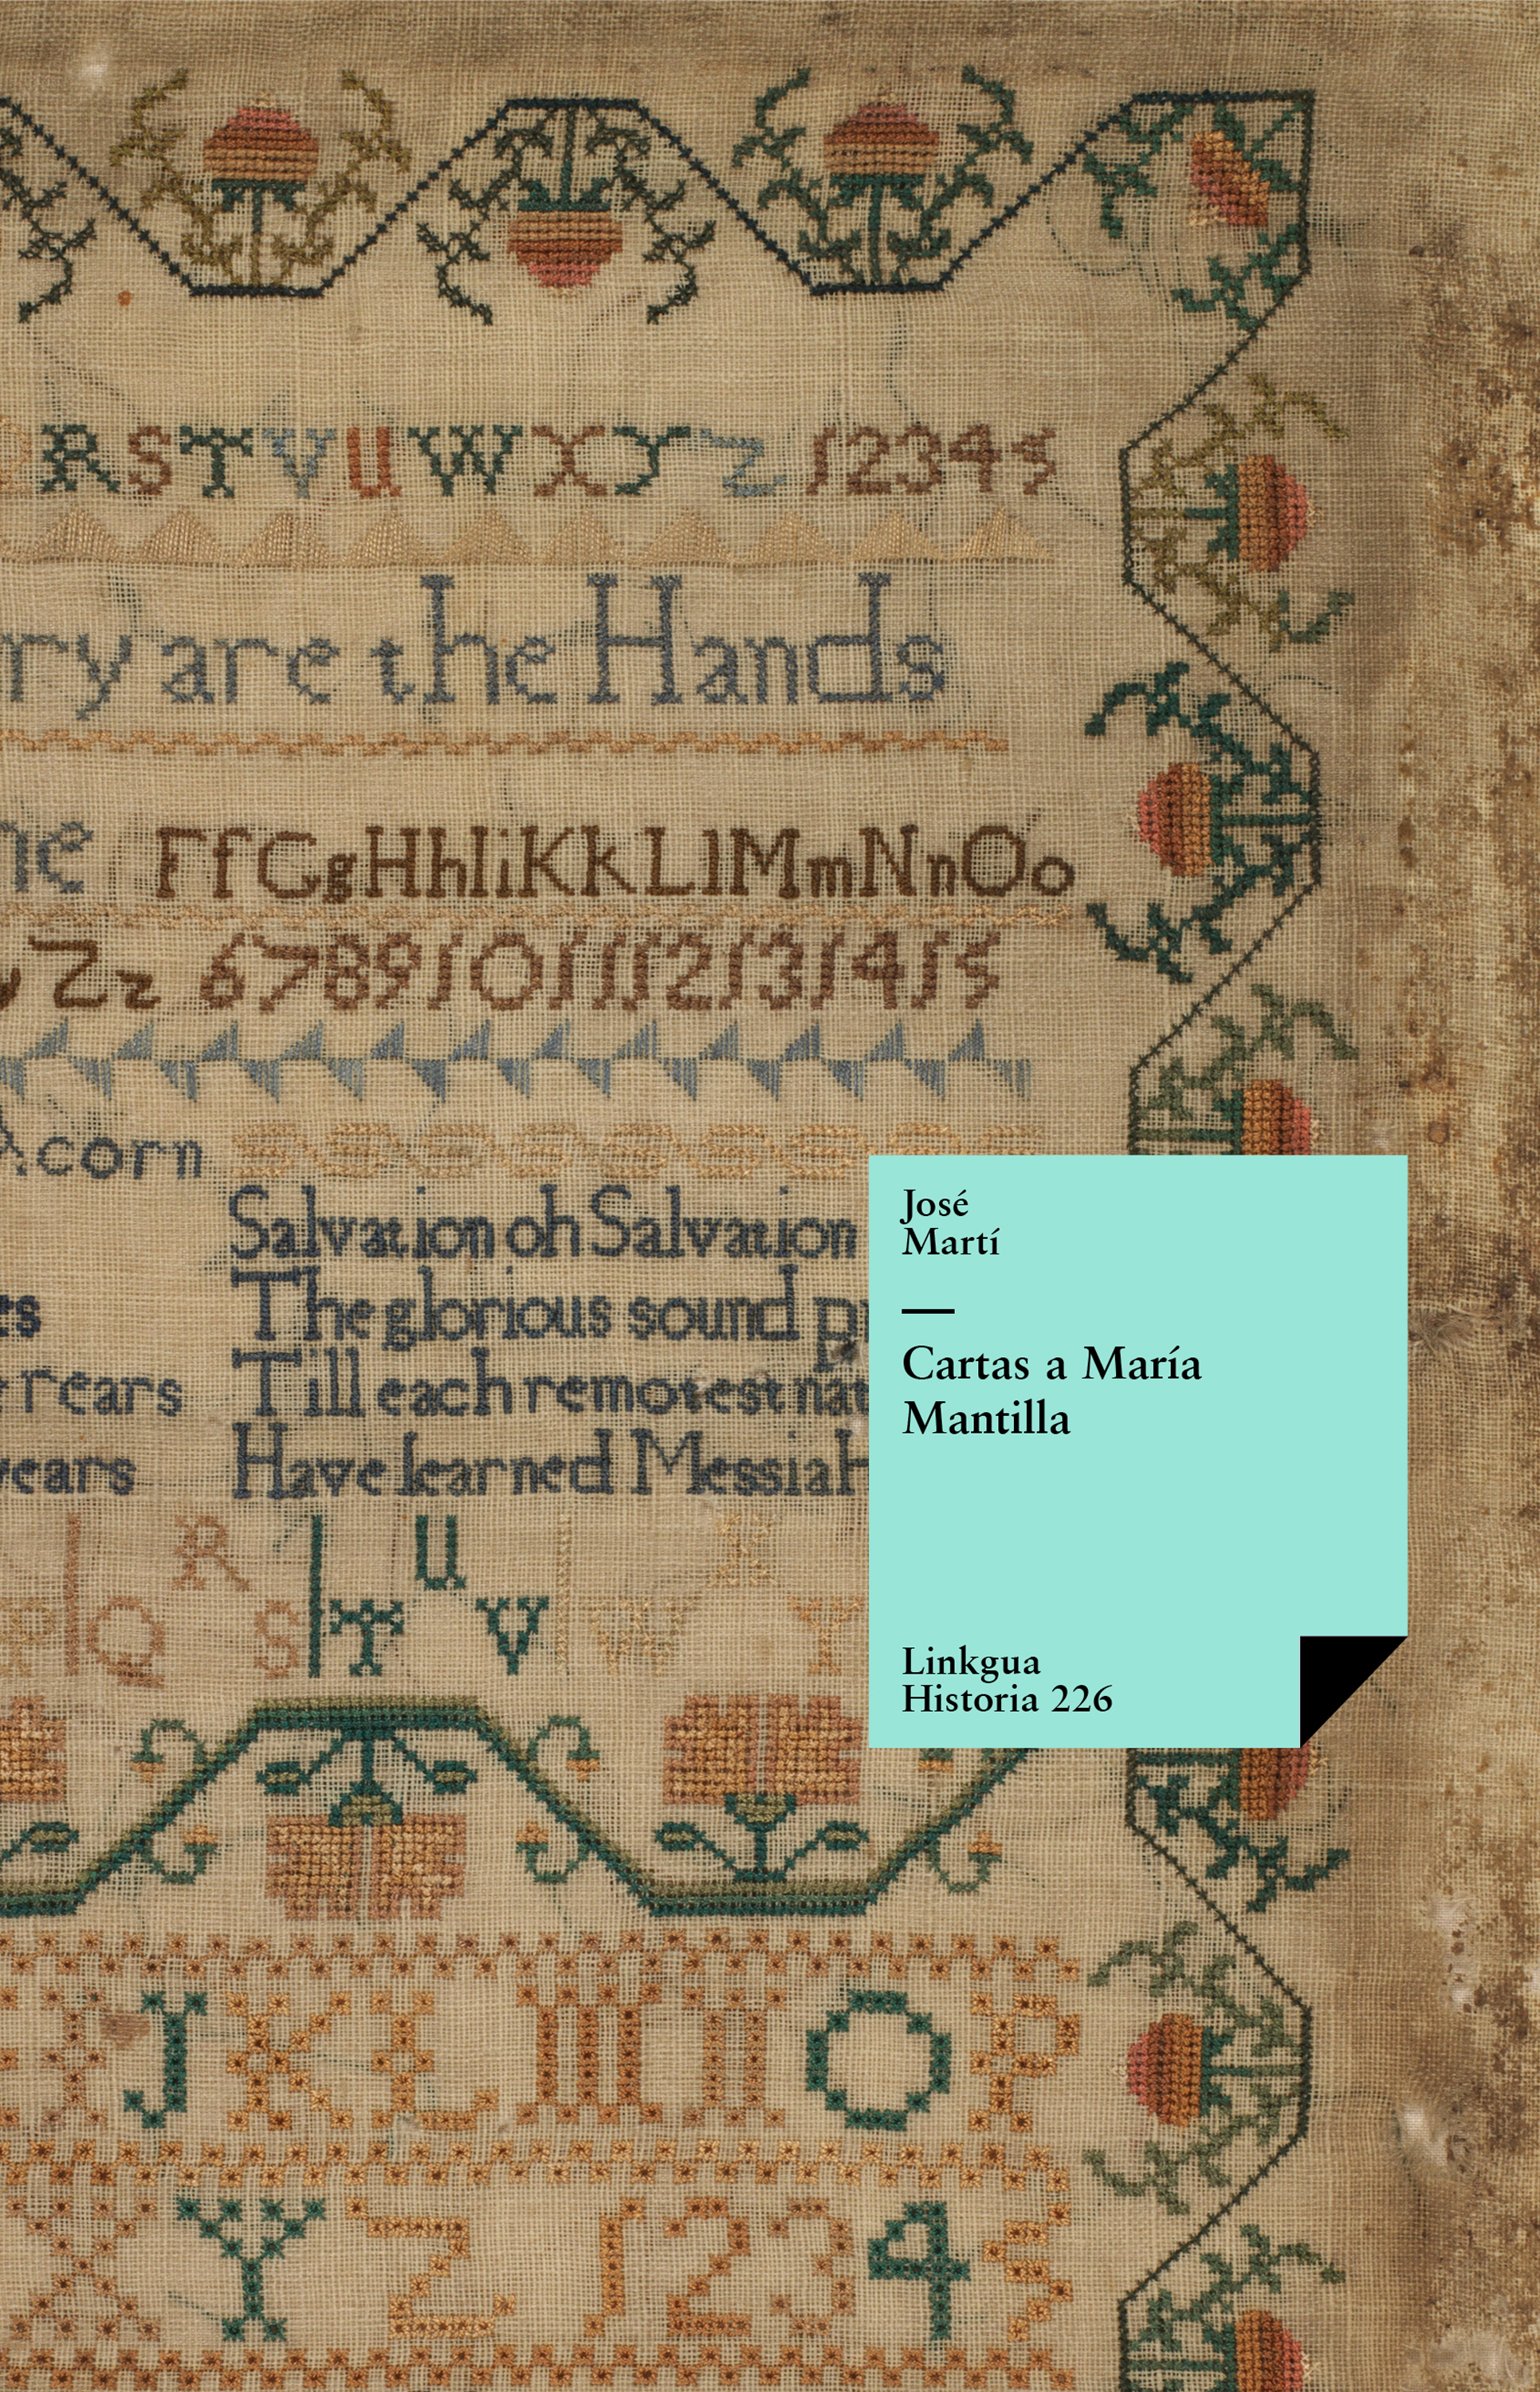 R S T V U W X Y Z 1 2 3 4 5
ry are the Hands
ne F f G g H h I i K k L l M m N n O o
Z z 6 7 8 9 10 11 12 13 14 15
Acorn
Salvation oh Salvation
es The glorious sound pr
rears Till each remotest nat
years Have learned Messiah
P Q R S T U V W X Y
José
Martí
Cartas a María
Mantilla
Linkgua
Historia 226
I J K L M N O P
X Y Z 1 2 3 4 5